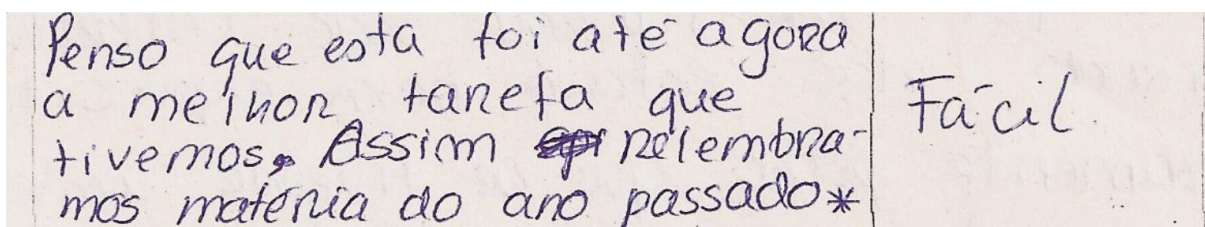 Penso que esta foi até agora
a melhor tarefa que
tivemos, Assim relembra-
mos matéria do ano passado*
Fácil.